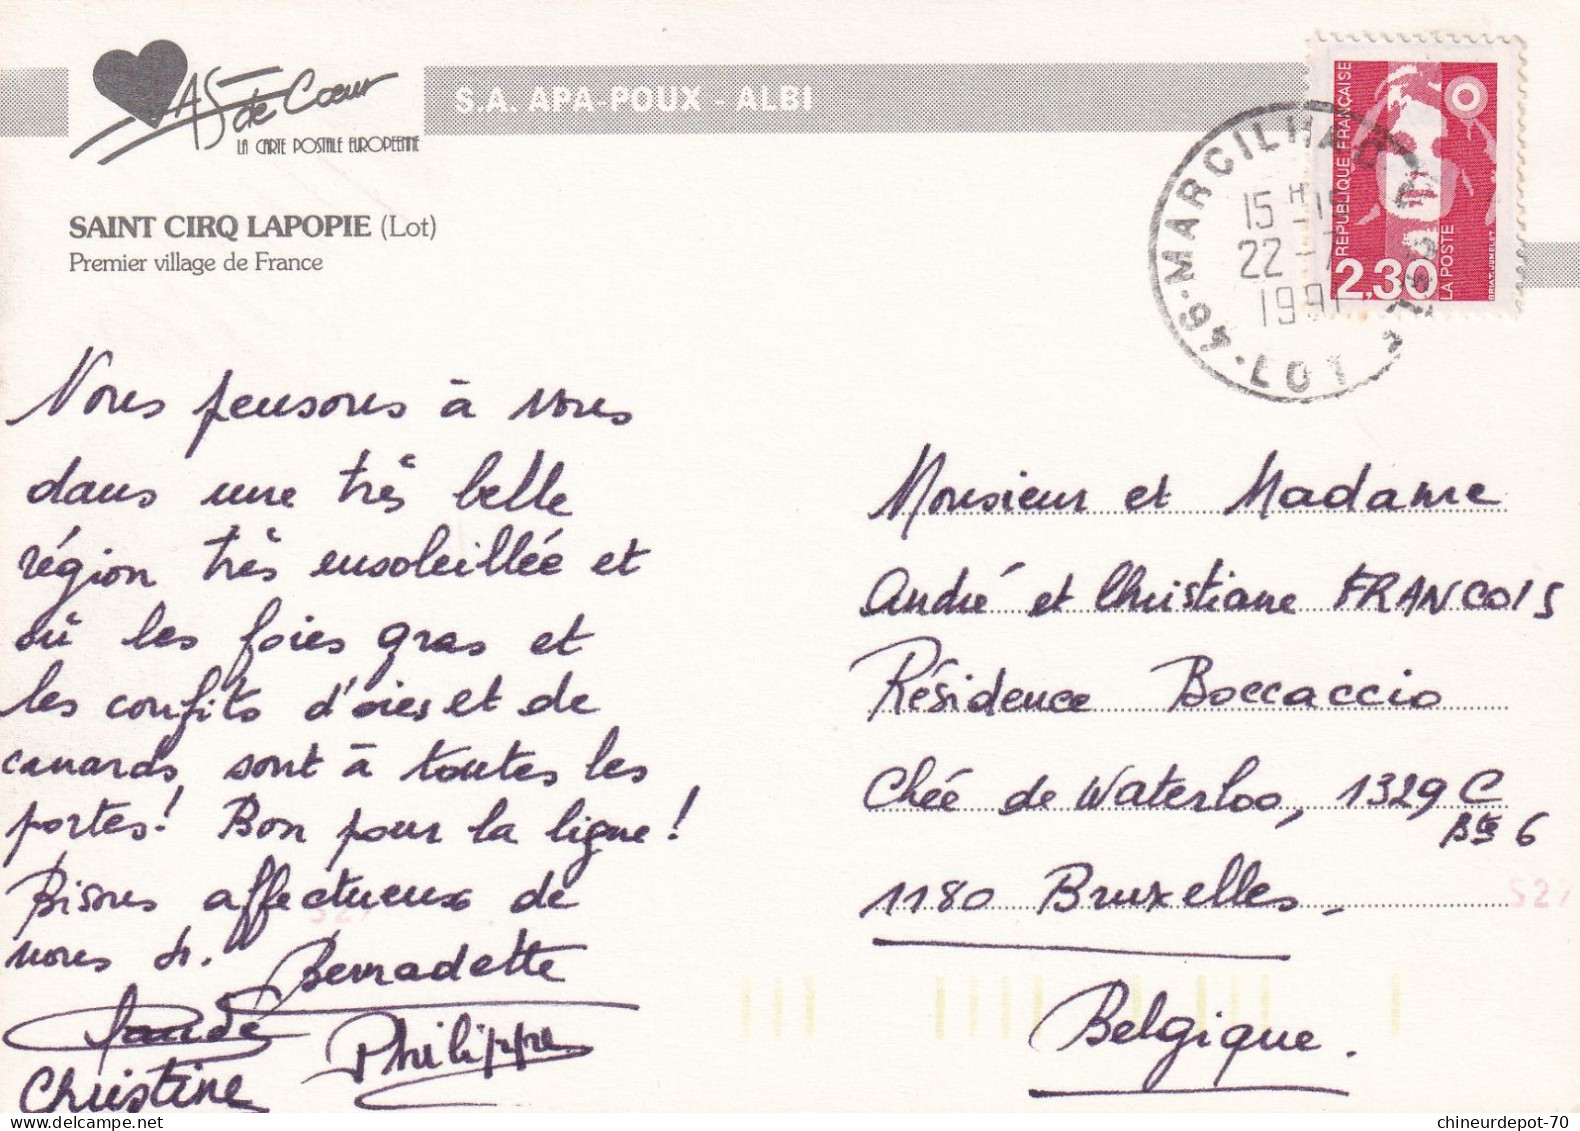 As de Cœur
LA CARTE POSTALE EUROPEENNE
S.A. APA-POUX - ALBI
SAINT CIRQ LAPOPIE (Lot)
Premier village de France
REPUBLIQUE FRANÇAISE
2,30
LA POSTE
BRIAT-JUMELET
46-MARCILHAC
15 H
22 -7
1991
LOT
Nous pensons à vous
dans une très belle
région très ensoleillée et
où les foies gras et
les confits d'oies et de
canards, sont à toutes les
portes! Bon pour la ligne!
Bisous affectueux de
nous 4. Bernadette
Philippe
Christine
Monsieur et Madame
André et Christiane FRANCOIS
Résidence Boccaccio
Chée de Waterloo, 1329 C
Bte 6
1180 Bruxelles -
Belgique.
527
527
chineurdepot-70